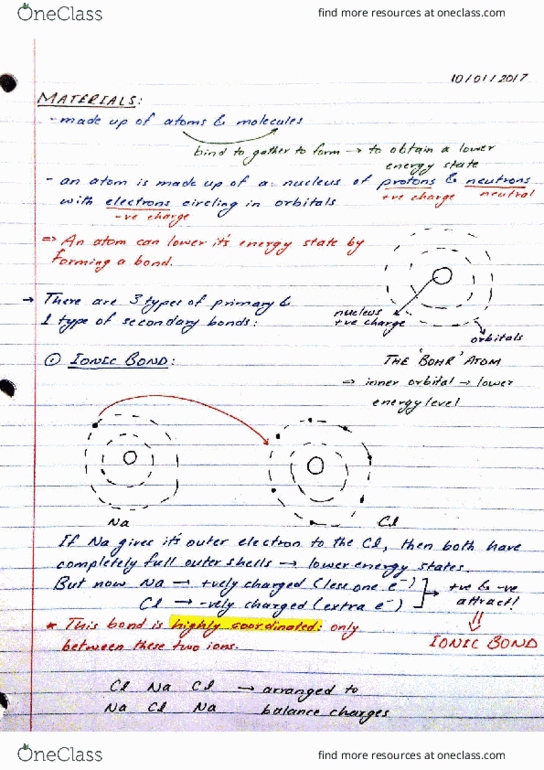 OneClass find more resources at oneclass.com
10/01/2017
MATERIALS:
- made up of atoms & molecules
bind to gather to form → to obtain a lower
energy state
- an atom is made up of a nucleus of protons & neutrons
+ve charge neutral
with electrons circling in orbitals
-ve charge
⇒ An atom can lower it's energy state by
forming a bond.
→ There are 3 types of primary &
1 type of secondary bonds:
nucleus
+ve charge
orbitals
① IONIC BOND:
THE 'BOHR' ATOM
⇒ inner orbital → lower
energy level
Na Cl
If Na gives it's outer electron to the Cl, then both have
completely full outer shells → lower energy states.
But now Na → +vely charged (less one e⁻)
Cl → -vely charged (extra e⁻)
→ +ve & -ve
attract!
⇓
IONIC BOND
* This bond is highly coordinated: only
between these two ions.
Cl Na Cl → arranged to
Na Cl Na balance charges
OneClass find more resources at oneclass.com